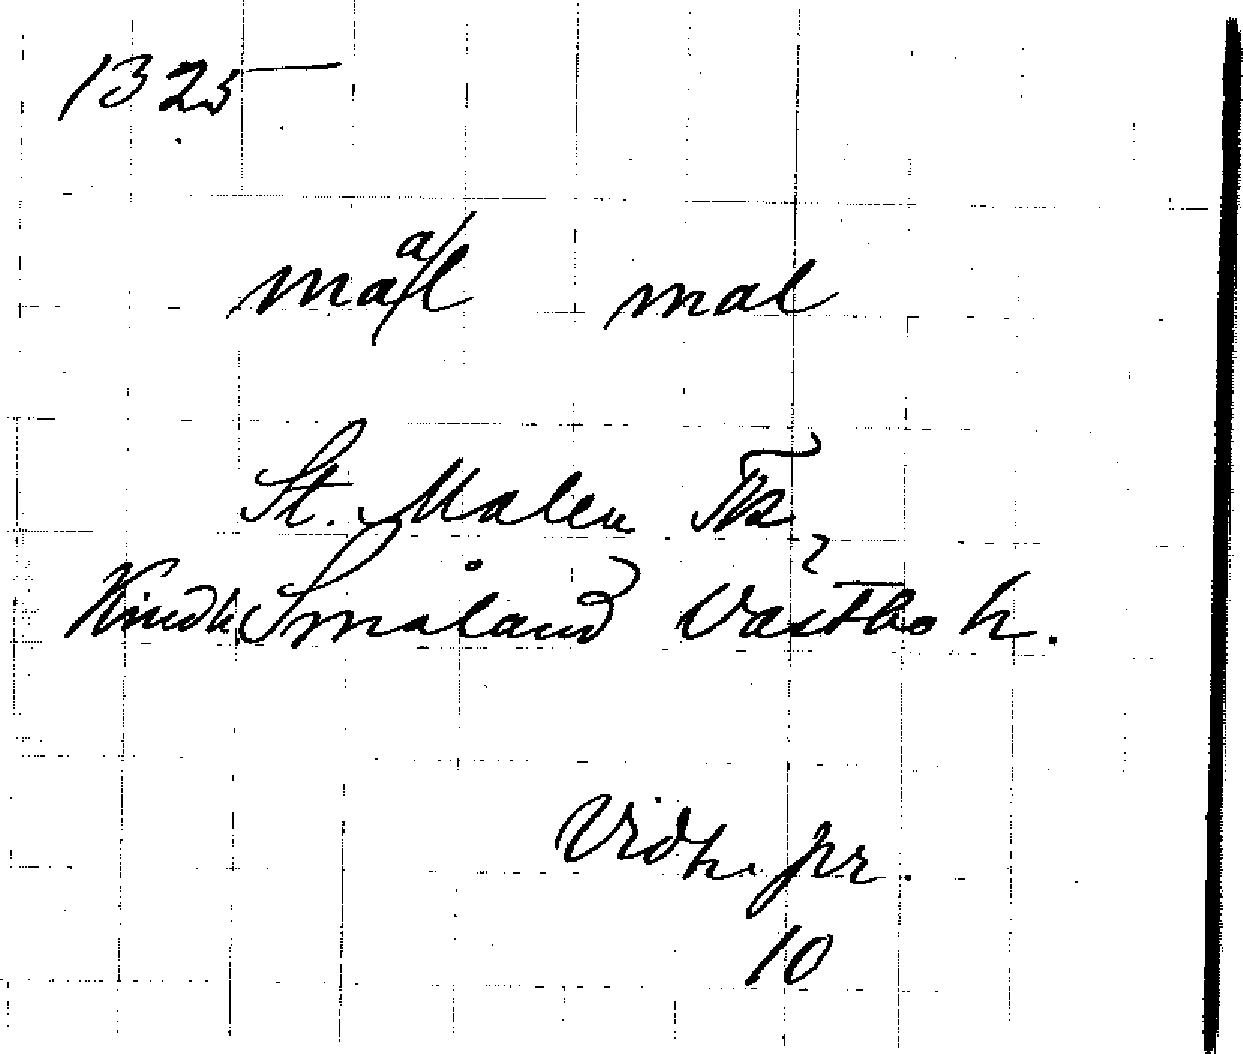 1325
maal mal
St. Malen Tk
Kindh. Småland Västbo h.
Vidh. pr.
10